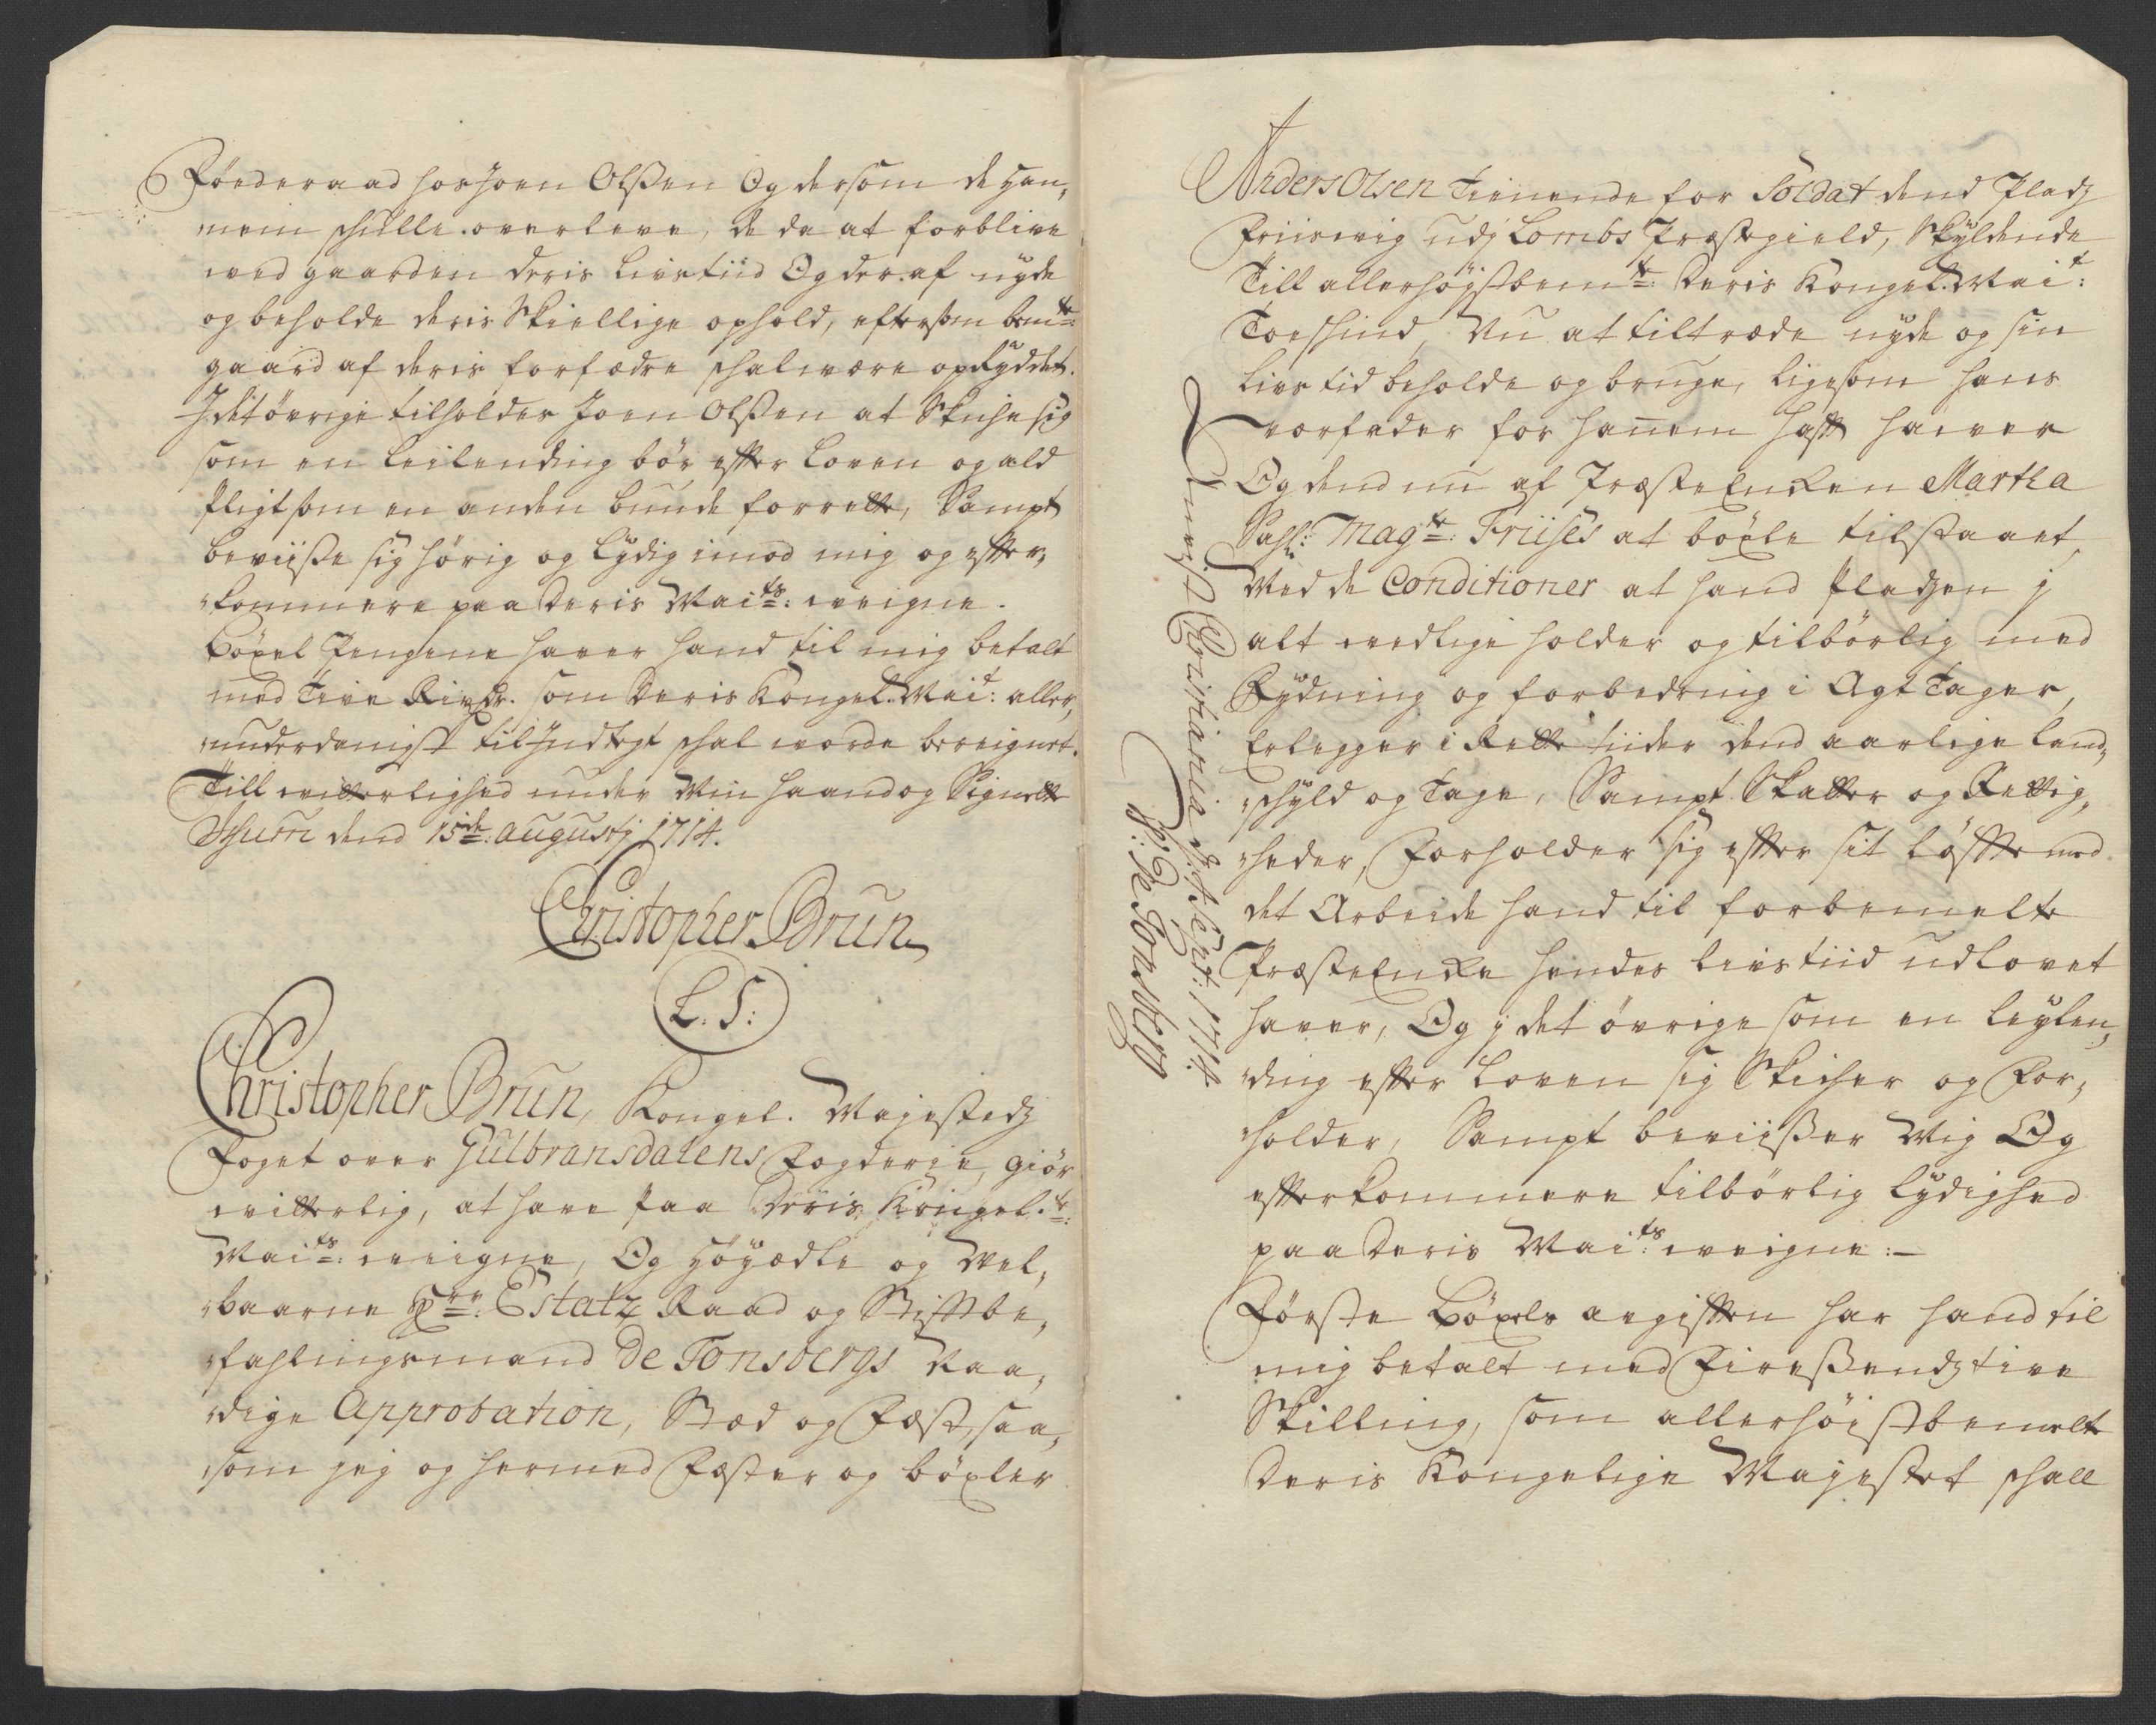 Föederaad hos Joen Olßen Og dersom de han,
nem schulle overleve, de da at forblive
ved gaarden deris Livstiid Og der af nyde
og beholde deris Skiellige ophold, eftersom bemte:
gaard af deris forfædre schal være opRyddet.
J det övrige tilholdes Joen Olßen at Skiche sig
som en Leilending bör, effter Loven og ald
Pligt som en anden bunde forrette, Sampt
beviiße sig hörig og Lydig imod mig og effter,
kommere paa Deris Maits: veigne.
Böxel Pengene haver hand til mig betalt
med Tive Rixdr. som Deris Kongel. Mait: aller,
underdanigst til Indtegt schal vorde bereignet.
Till vitterlighed under Min Haand og Signette
Thurn dend 15de: Augustj 1714.
Christopher Brun
L. S:
Christopher Brun, Kongel. Majestedz
Foget over Gulbransdalens Fogderie, giör
vitterlig, at have paa Deris Kongel.te:
Maits: veigne, Og Höyædle og Vel,
baarne Hrr: Estatz Raad og Stifftbe,
fahlingsmand De Tonsbergs Naa,
dige Approbation, Stæd og Fæst, saa,
som jeg og hermed Fæster og böxler
Anders Olsen tienende for Soldat dend Pladz
Friisvig udj Lombs Præstegield, Skyldende
Till allerhöystbemte: Deris Kongel. Mait:
Toe shind, Nu at tiltræde nyde og sin
Livs tid beholde og bruge, ligesom hans
vorfader for hannem hafft haver
Og dend nu af Præste Encken Martha
Sahl: Magte: Friises at böxle tilstaaet,
Med de Conditioner at hand Pladzen j
alt vedlige holder og tilbörlig med
Rydning og forbedring i Agt Tager,
Erlegger i Rette tiider dend aarlige Land,
schyld og Tage, Sampt Skatter og Rettig,
heder, Forholder sig effter sit Löffte med
det Arbeide hand til forbemelte
Præste Encke hendes Livs tiid udlovet
haver, Og j det övrige som en Leylen,
ding effter Loven sig Skicher og For,
holder, Sampt beviißer Mig Og
effterkommere tilbörlig Lydighed
paa Deris Maits: veigne:-
Förste Böxels avgifften har hand til
mig betalt med Fireßendztive
Skilling, som allerhöistbemelte
Deris Kongelige Majestet schall
Christiania d: Sept: 1714.
De Tonsberg